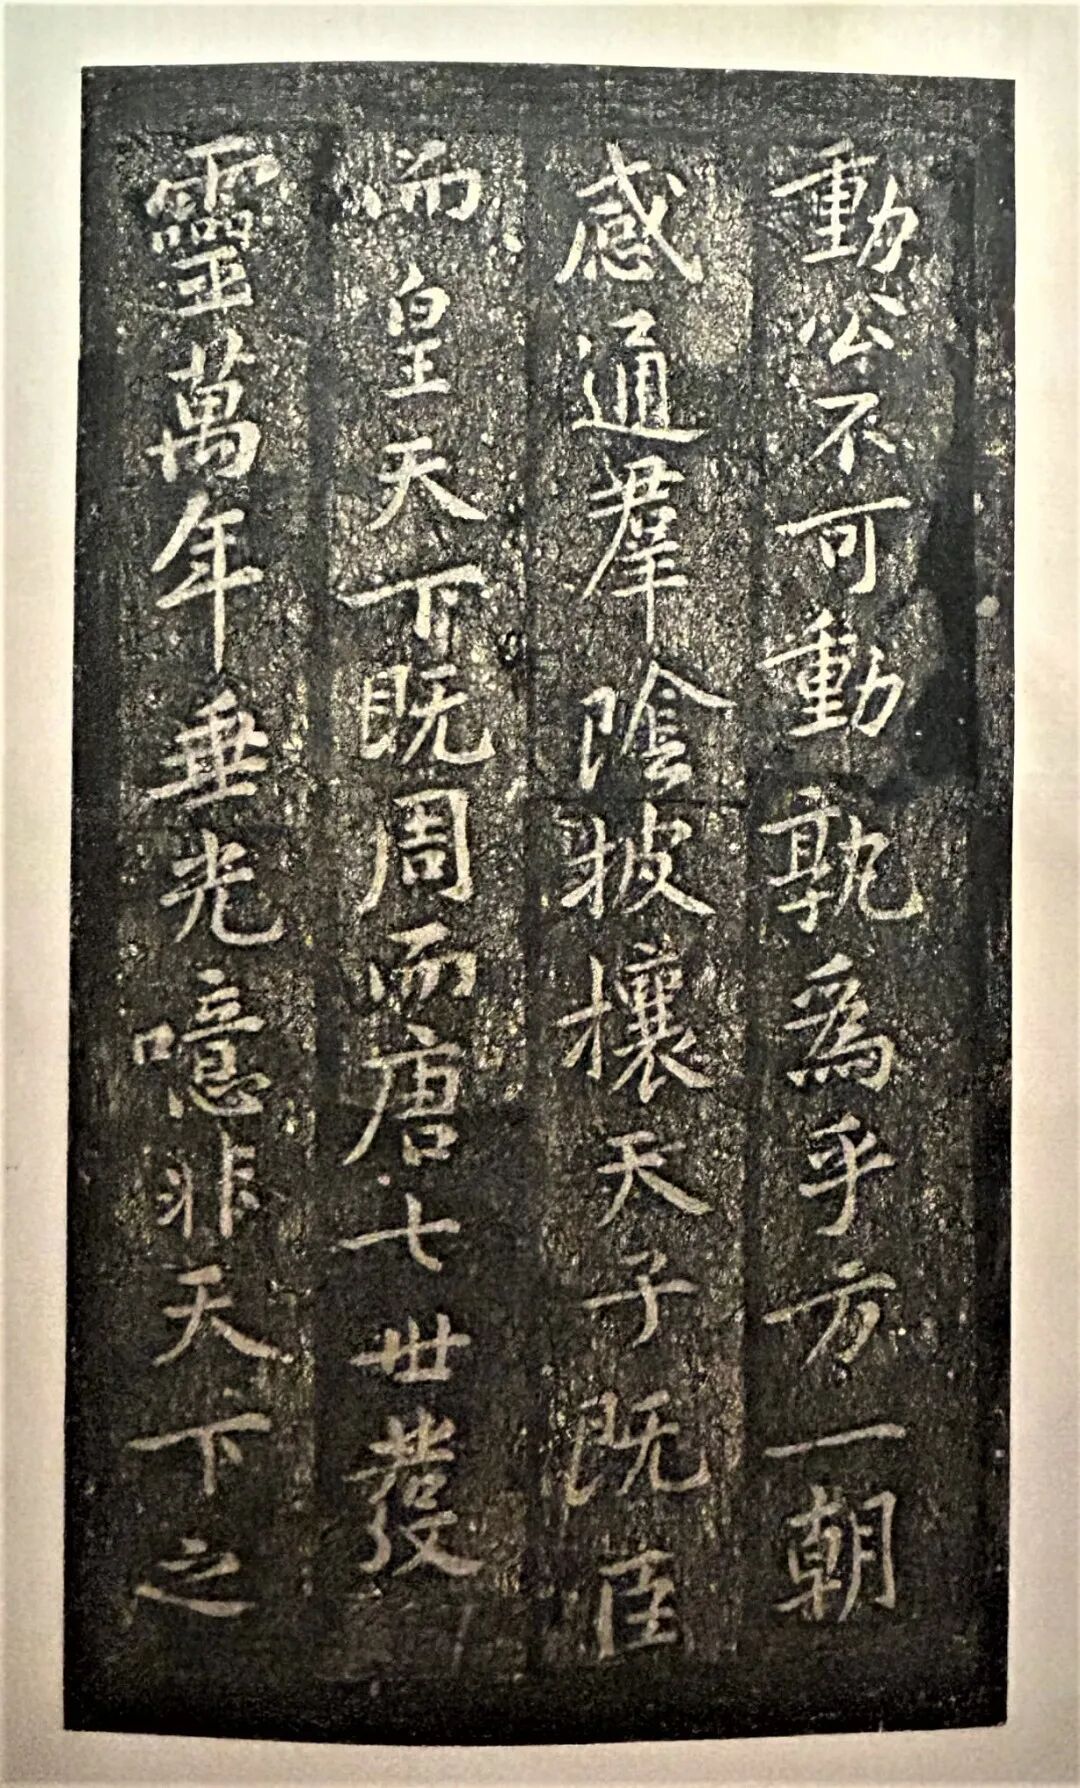 動公不可動孰為乎方一朝
感通羣陰披攘天子既臣
而皇天下既周而唐七世發
靈萬年垂光噫非天下之